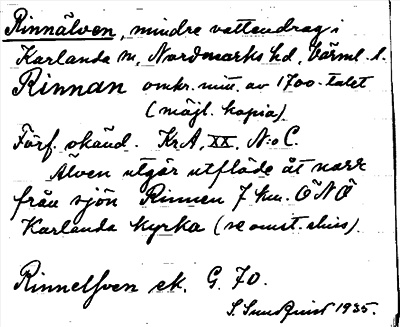 Rinnälven, mindre vattendrag i
Karlanda sn, Nordmarks hd, Värml. l.
Rinnan omkr. mitt. av 1700-talet
(möjl. kopia).
Förf. okänd. KrA, XX, N:o C.
Älven utgör utflöde åt norr
från sjön Rinnen 7 km. ÖNÖ
Karlanda kyrka (se omst. skiss).
Rinnelfven ek. G. 70.
S. Sundquist 1935.